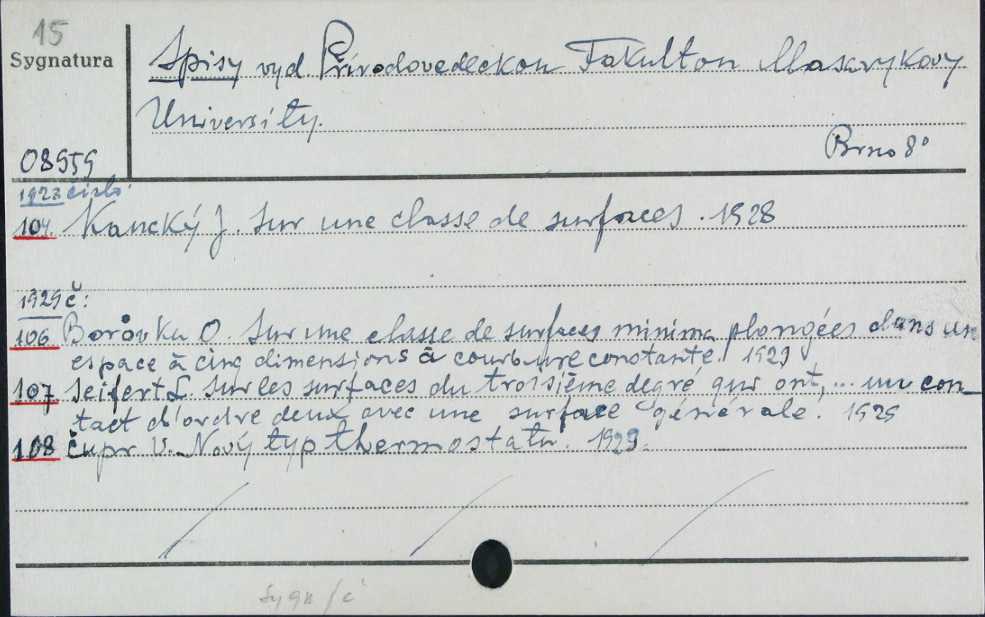 15
Sygnatura
Spisy vyd Přírodovedeckou Fakultou Masarykovy
University.
Brno 8°
08959
1928 čislo:
104. Kaucký J. Sur une classe de surfaces. 1928
1929 č:
106. Borůvka O. Sur une classe de surfaces minima plongées dans un
espace à cinq dimensions à courbure constante. 1929
107 Seifert L. Sur les surfaces du troisième degré, qui ont, ... un con-
tact d'ordre deux avec une surface générale. 1929
108 Čupr V. Nový typ thermostatu. 1929.
Sygn/č